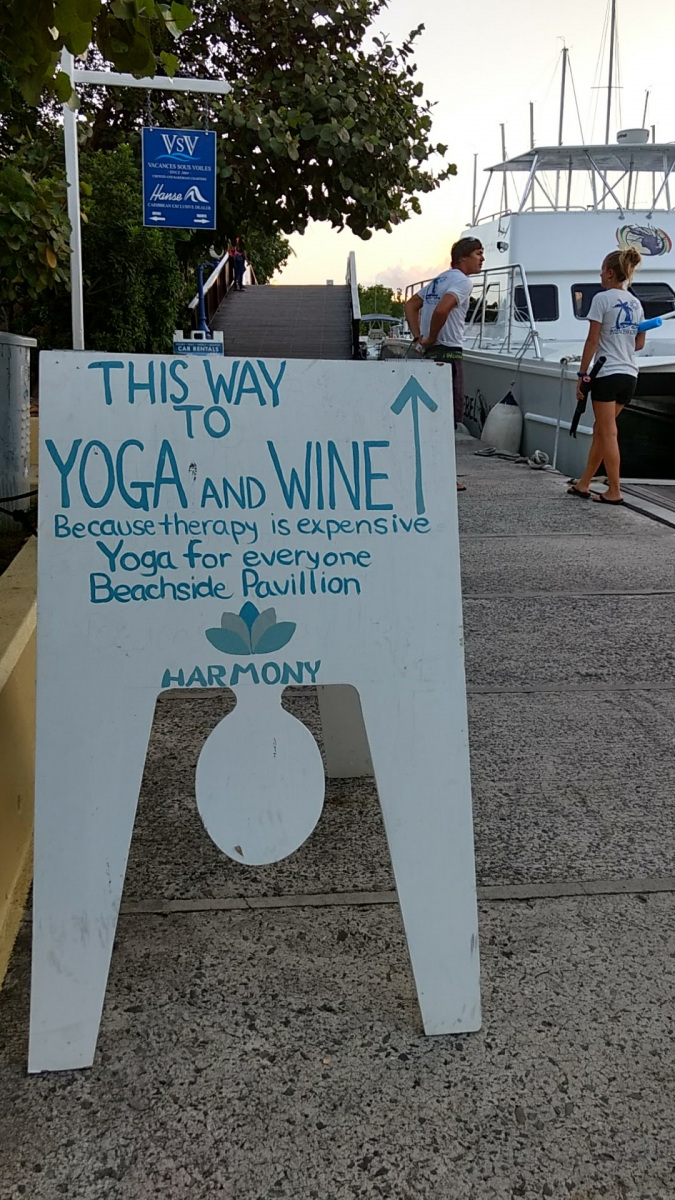 VSV
VACANCES SOUS VOILES
Hanse
CARIBBEAN EXCLUSIVE DEALER
CAR RENTALS
THIS WAY
TO
YOGA AND WINE
Because therapy is expensive
Yoga for everyone
Beachside Pavillion
HARMONY